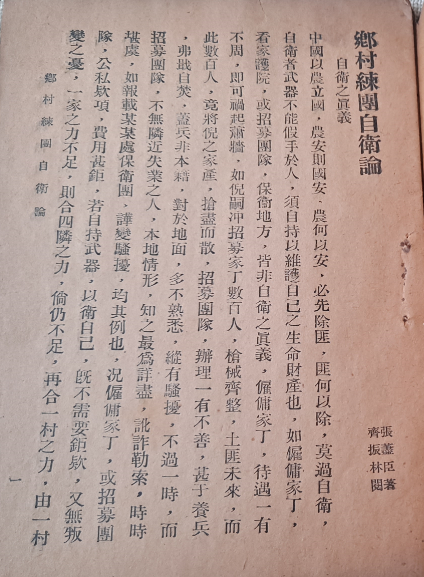 鄉村練團自衛論
張藎臣著
齊振林閱
自衛之眞義
中國以農立國，農安則國安，農何以安，必先除匪，匪何以除，莫過自衛，
自衛者武器不能假手於人，須自持以維護自己之生命財產也，如僱傭家丁，
看家護院，或招募團隊，保衛地方，皆非自衛之眞義，僱傭家丁，待遇一有
不周，即可禍起蕭牆，如倪嗣冲招募家丁數百人，槍械齊整，土匪未來，而
此數百人，竟將倪之家產，搶盡而散，招募團隊，辦理一有不善，甚于養兵
，弗戢自焚，蓋兵非本籍，對於地面，多不熟悉，縱有騷擾，不過一時，而
招募團隊，不無隣近失業之人，本地情形，知之最爲詳盡，訛詐勒索，時時
堪虞，如報載某某處保衛團，譁變騷擾，均其例也，況僱傭家丁，或招募團
隊，公私欵項，費用甚鉅，若自持武器，以衛自己，旣不需要鉅欵，又無叛
變之憂，一家之力不足，則合四隣之力，倘仍不足，再合一村之力，由一村
鄉村練團自衛論
一